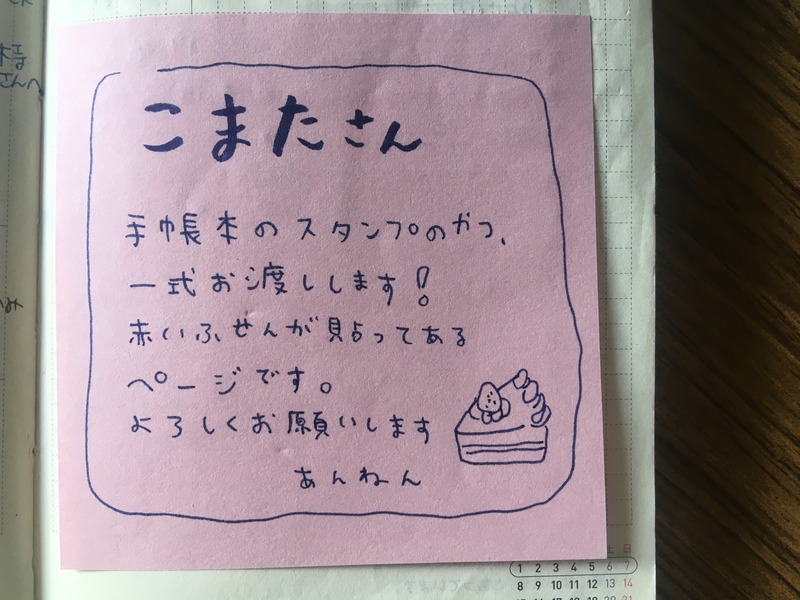 こまたさん
手帳本のスタンプのかつ、
一式お渡しします!
赤いふせんが貼ってある
ページです。
よろしくお願いします
あんねん
土 日
1 2 3 4 5 6 7
8 9 10 11 12 13 14